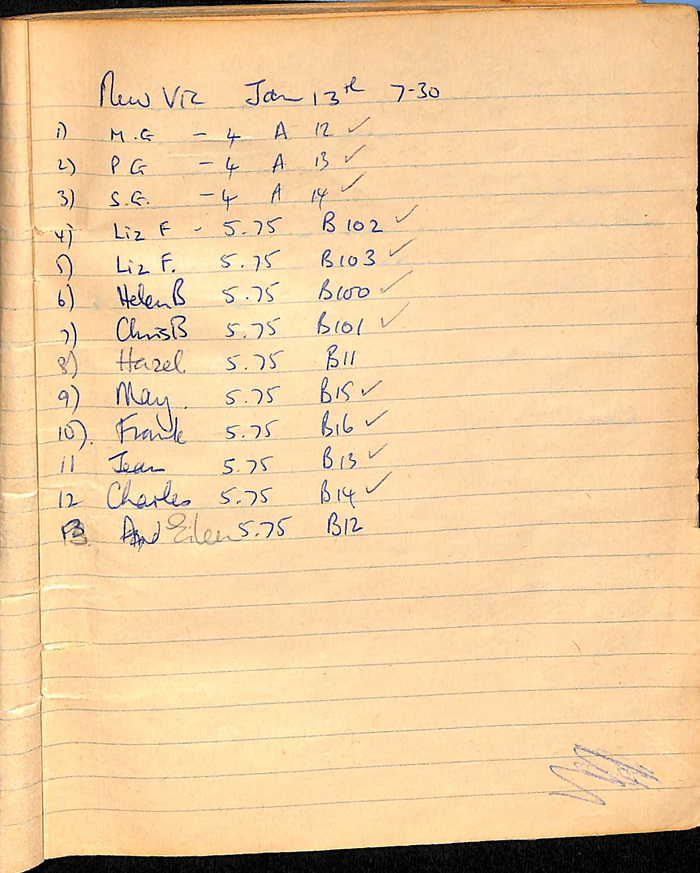 New Vic Jan 13th 7-30
1) M.G - 4 A 12 ✓
2) P G - 4 A 13 ✓
3) S.G. - 4 A 14 ✓
4) Liz F - 5.75 B 102 ✓
5) Liz F. 5.75 B103 ✓
6) Helen B 5.75 B100 ✓
7) Chris B 5.75 B101 ✓
8) Hazel 5.75 B11
9) May. 5.75 B15 ✓
10). Frank 5.75 B16 ✓
11 Jean 5.75 B13 ✓
12 Charles 5.75 B14 ✓
13. Eileen 5.75 B12